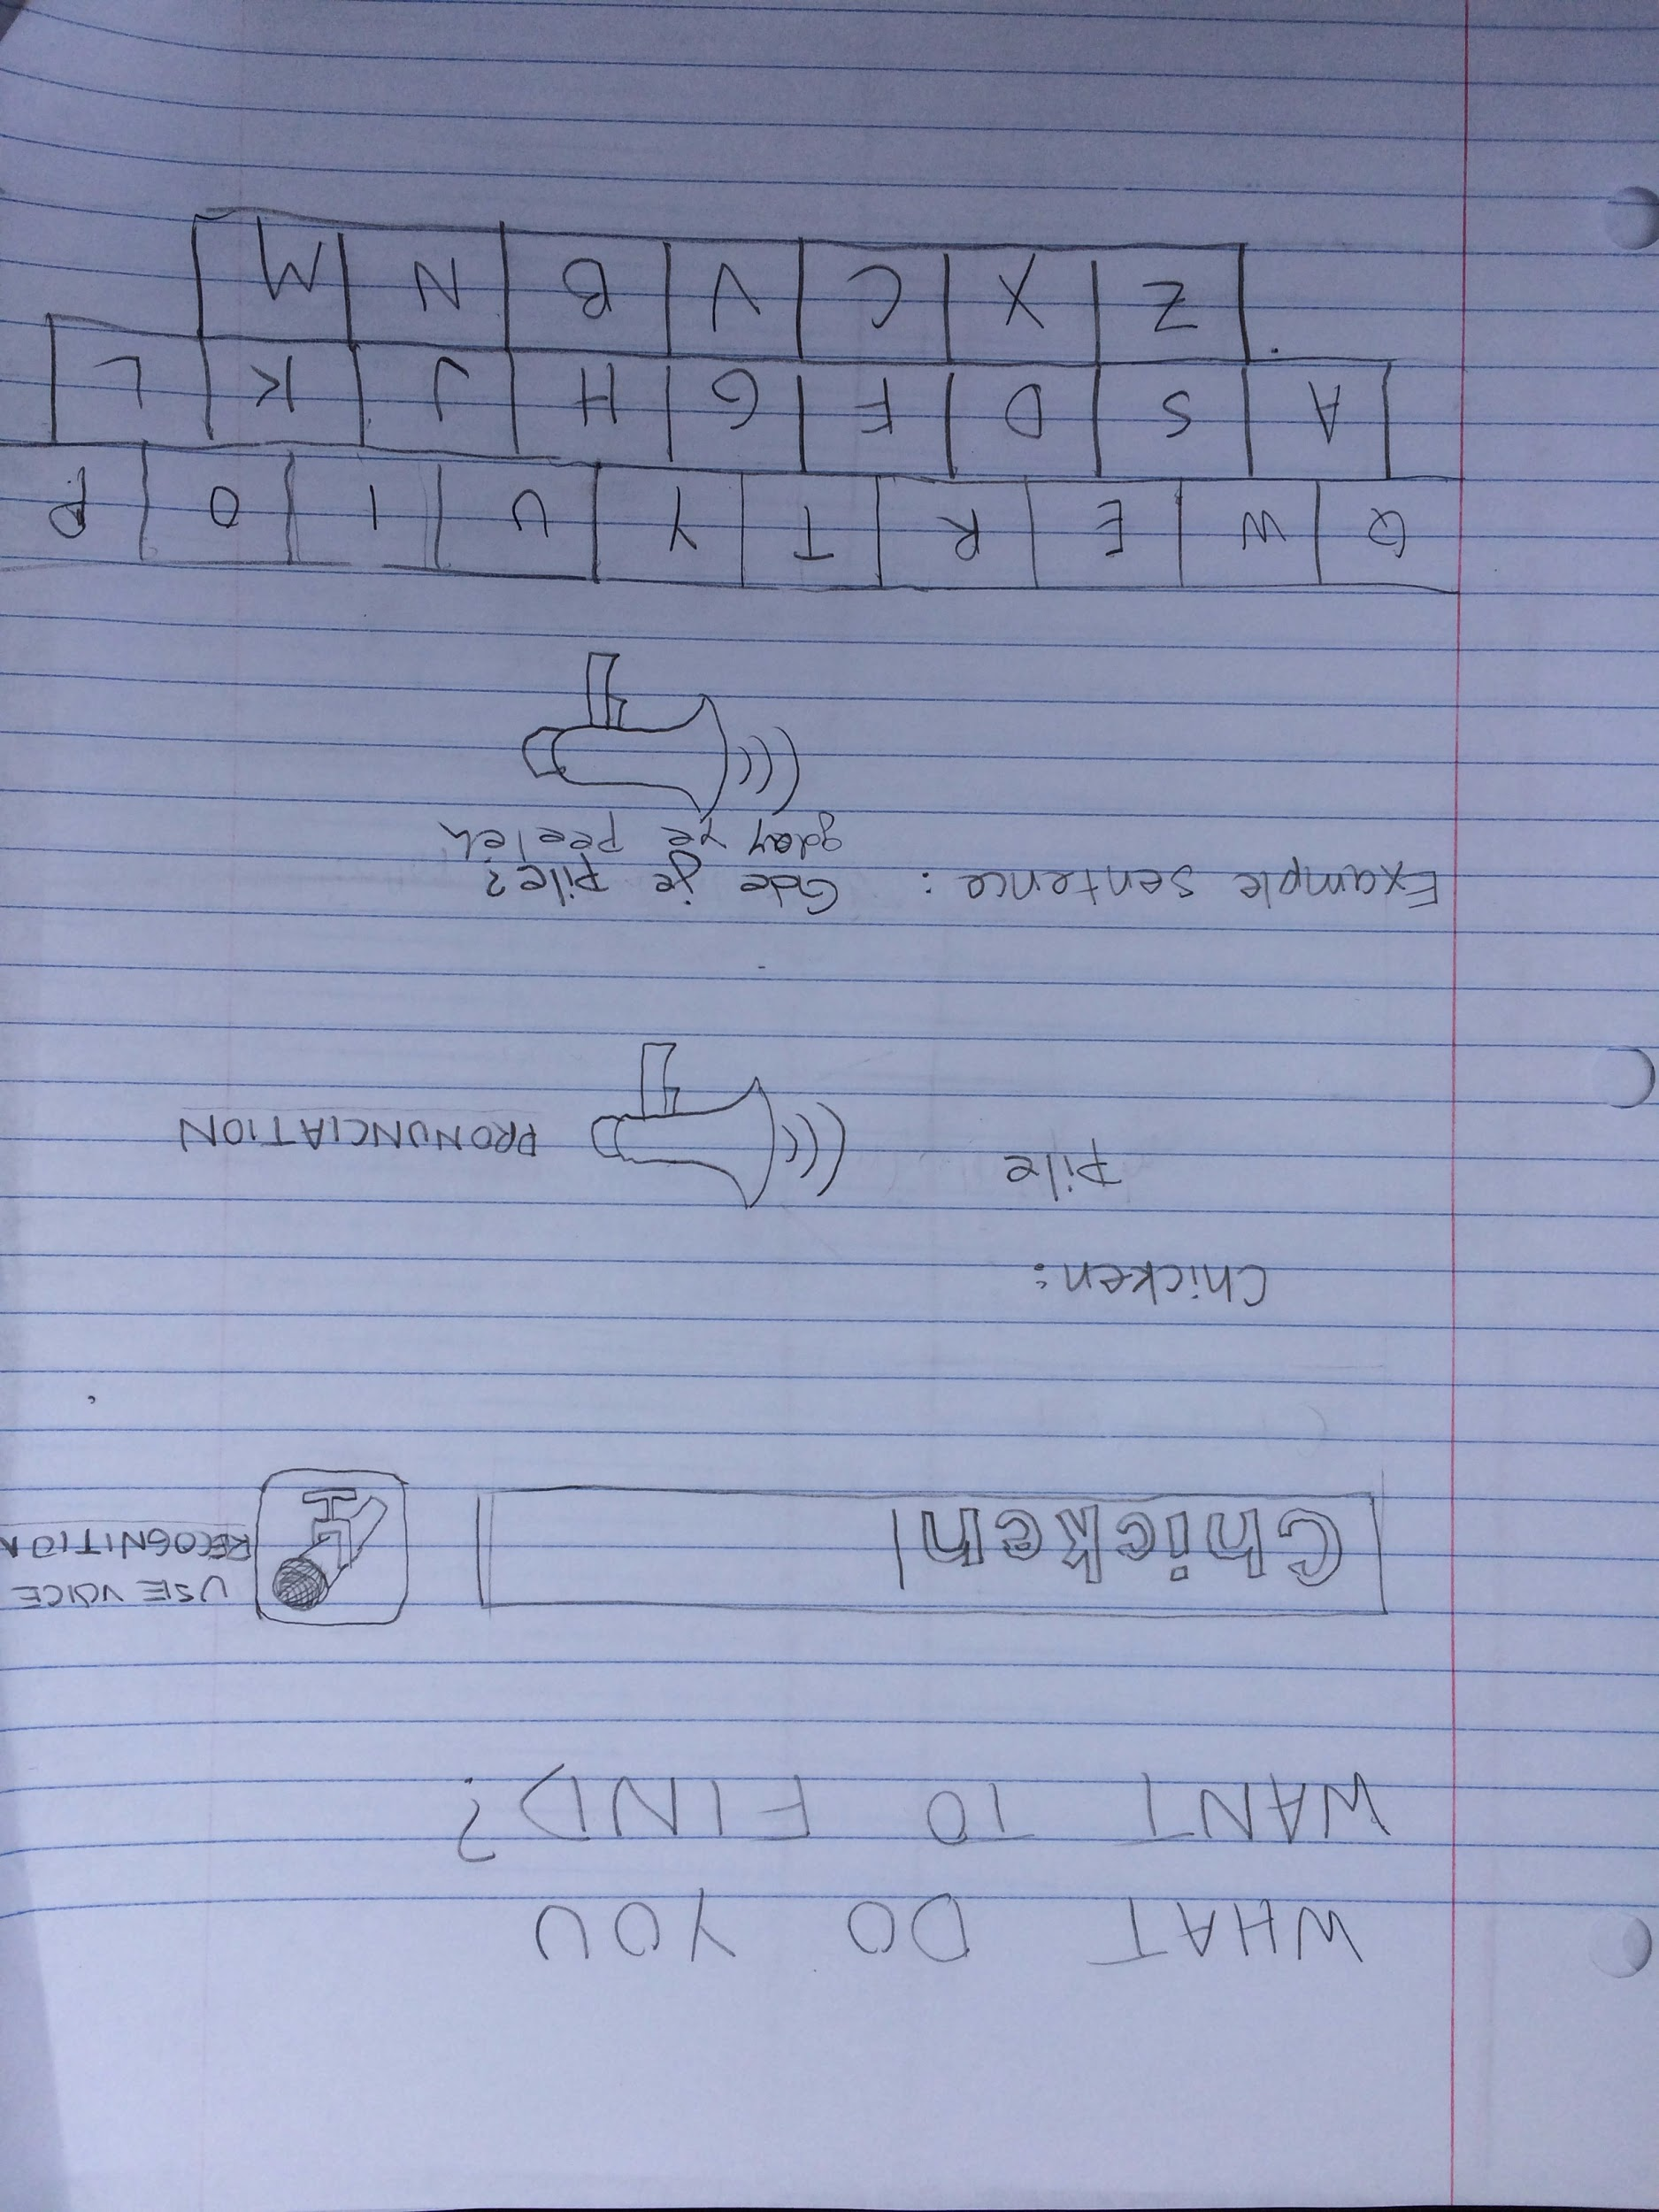 WHAT DO YOU
WANT TO FIND?
Chicken
USE VOICE
RECOGNITION
Chicken:
Pile
PRONUNCIATION
Example sentence: Gde je pile?
gday ye peeleh
Q W E R T Y U I O P
A S D F G H J K L
Z X C V B N M